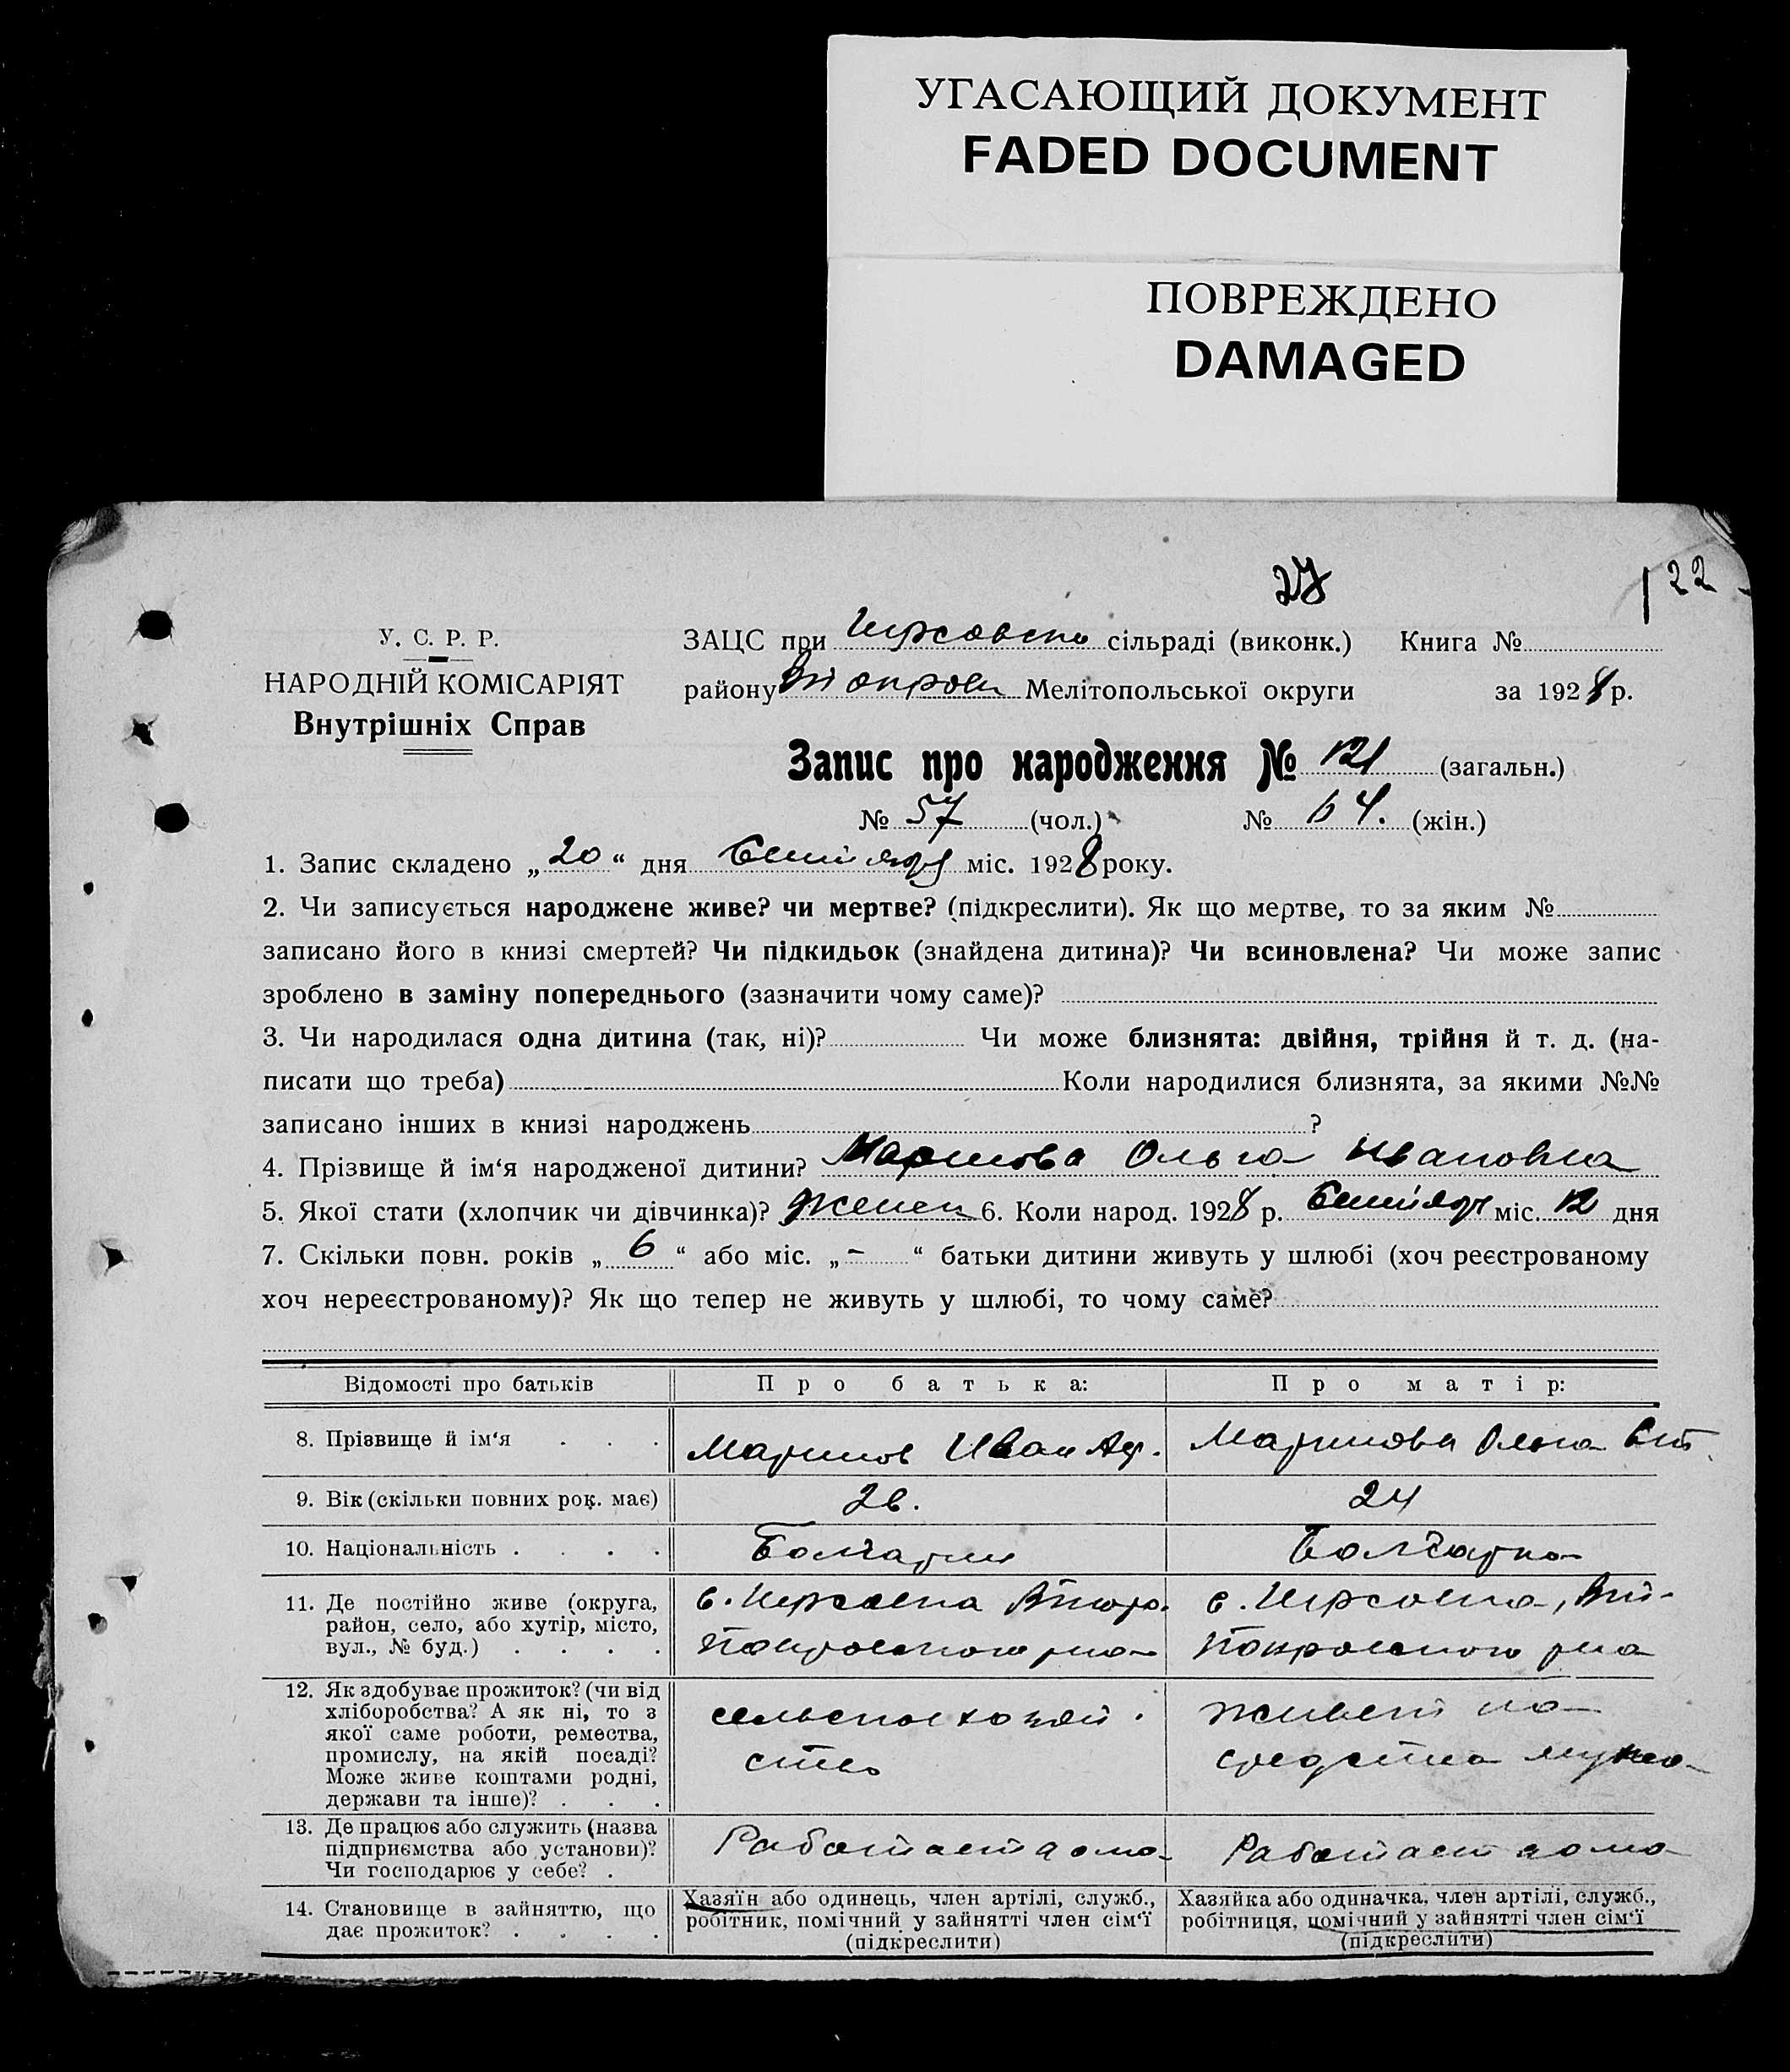 УГАСАЮЩИЙ ДОКУМЕНТ
FADED DOCUMENT
ПОВРЕЖДЕНО
DAMAGED
27
122
У. С. Р. Р.
НАРОДНІЙ КОМІСАРІЯТ
Внутрішніх Справ
ЗАЦС при сільраді (виконк.) Книга №
району Мелітопольської округи за 1928 р.
Запис про народження № 121 (загальн.)
№ 57 (чол.) № 64. (жін.)
1. Запис складено „20“ дня Сентября міс. 1928 року.
2. Чи записується народжене живе? чи мертве? (підкреслити). Як що мертве, то за яким №
записано його в книзі смертей? Чи підкидьок (знайдена дитина)? Чи всиновлена? Чи може запис
зроблено в заміну попереднього (зазначити чому саме)?
3. Чи народилася одна дитина (так, ні)? Чи може близнята: двійня, трійня й т. д. (на-
писати що треба) Коли народилися близнята, за якими №№
записано інших в книзі народжень ?
4. Прізвище й ім‘я народженої дитини? Маринова Ольга Ивановна
5. Якої стати (хлопчик чи дівчинка)? Женск 6. Коли народ. 1928 р. Сентября міс. 12 дня
7. Скільки повн. років „6“ або міс. „–“ батьки дитини живуть у шлюбі (хоч реєстрованому
хоч нереєстрованому)? Як що тепер не живуть у шлюбі, то чому саме?
Відомості про батьків Про батька: Про матір:
8. Прізвище й ім‘я . . . Маринов Иван Маринова Ольга
9. Вік (скільки повних рок. має) 26. 24
10. Національність . . . . Болгарин Болгарка
11. Де постійно живе (округа,
район, село, або хутір, місто,
вул., № буд.) . . . .
с. Инзовка
Покровского р-на
с. Инзовка,
Покровского р-на
12. Як здобуває прожиток? (чи від
хліборобства? А як ні, то з
якої саме роботи, ремества,
промислу, на якій посаді?
Може живе коштами родні,
держави та інше)? . . .
сельскохозяй
ство
живет на
средства мужа
13. Де працює або служить (назва
підприємства або установи)?
Чи господарює у себе? .
Работает дома
Работает дома
14. Становище в зайняттю, що
дає прожиток? . . . .
Хазяїн або одинець, член артілі, служб.,
робітник, помічний у зайнятті член сім‘ї
(підкреслити)
Хазяйка або одиначка, член артілі, служб.,
робітниця, помічний у зайнятті член сім‘ї
(підкреслити)